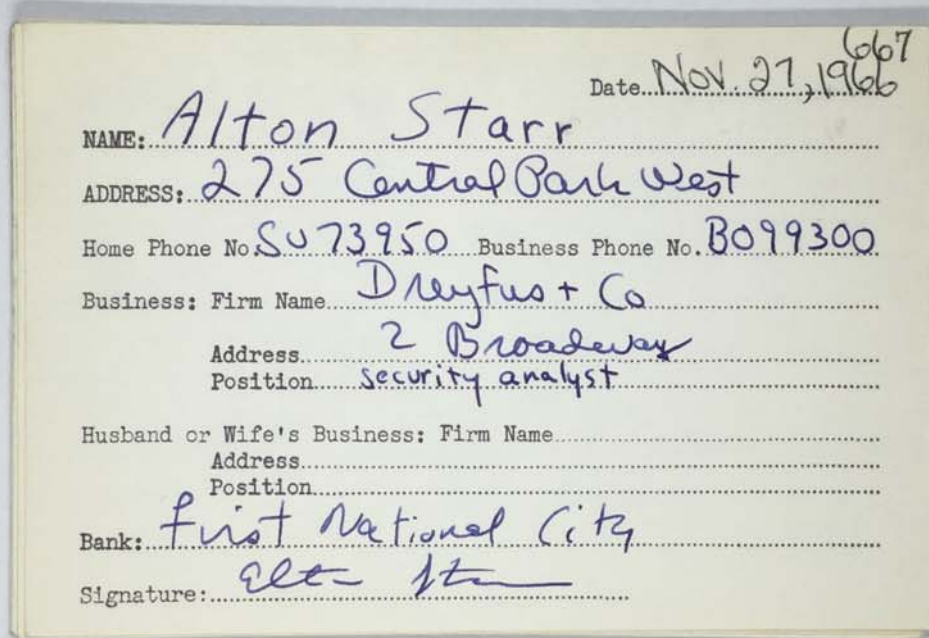 667
Date Nov. 27, 1966
NAME: Alton Starr
ADDRESS: 275 Central Park West
Home Phone No. SU73950 Business Phone No. BO99300
Business: Firm Name Dreyfus + Co
Address 2 Broadway
Position security analyst
Husband or Wife's Business: Firm Name
Address
Position
Bank: First National City
Signature: Alton Starr